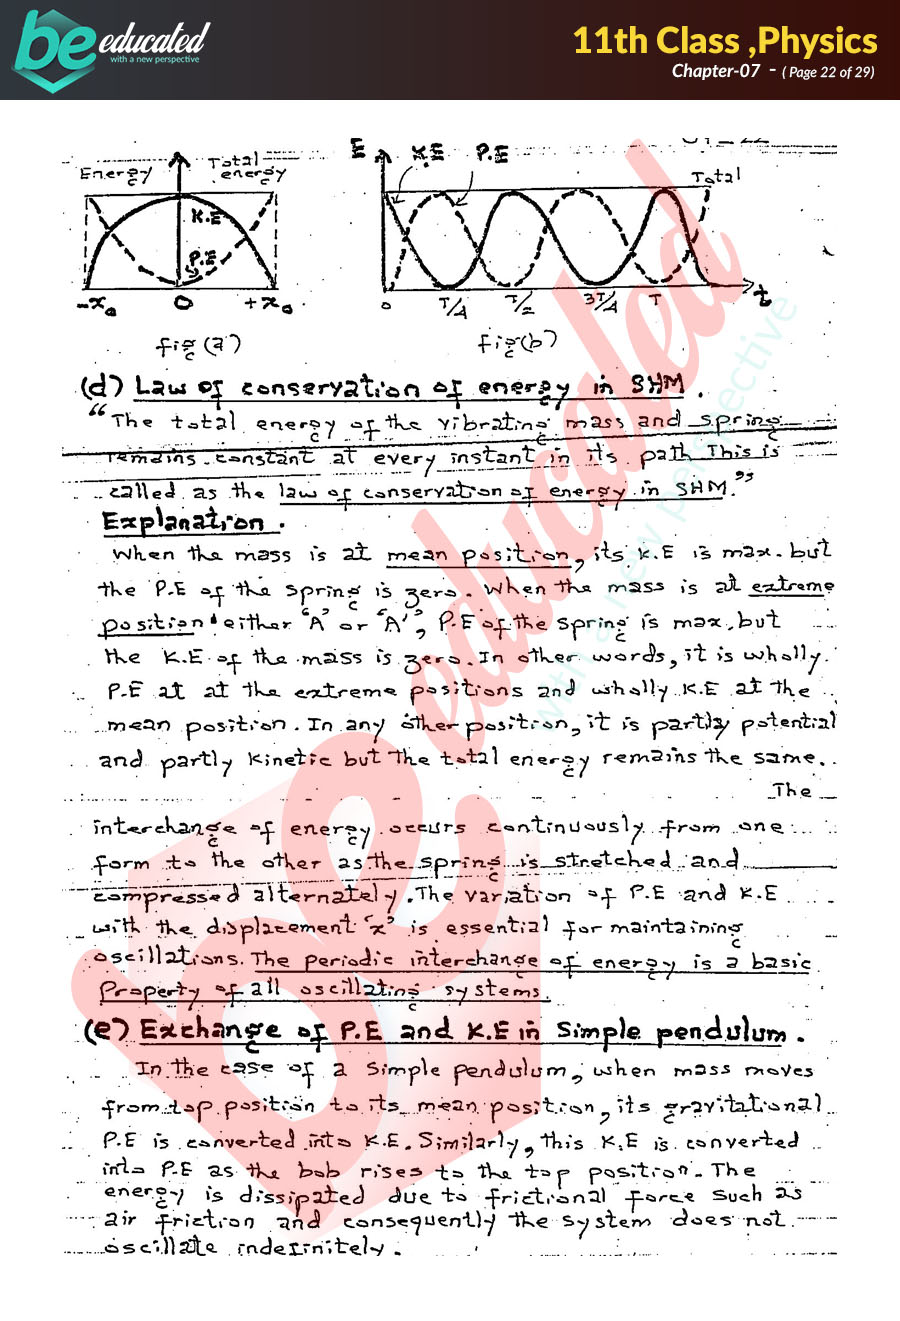 be educated
with a new perspective
11th Class ,Physics
Chapter-07 - ( Page 22 of 29)
Energy Total energy
K.E
P.E
-x₀ O +x₀
fig(a)
E K.E P.E
Total
0 T/4 T/2 3T/4 T t
fig(b)
(d) Law of conservation of energy in SHM.
"The total energy of the vibrating mass and spring
remains constant at every instant in its path This is
called as the law of conservation of energy in SHM."
Explanation.
When the mass is at mean position, its K.E is max. but
the P.E of the spring is zero. When the mass is at extreme
position either 'A' or 'A'', P.E of the spring is max, but
the K.E of the mass is zero. In other words, it is wholly
P.E at at the extreme positions and wholly K.E at the
mean position. In any other position, it is partly potential
and partly kinetic but the total energy remains the same.
The
interchange of energy occurs continuously from one
form to the other as the spring is stretched and
compressed alternately. The variation of P.E and K.E
with the displacement 'x' is essential for maintaining
oscillations. The periodic interchange of energy is a basic
Property of all oscillating systems.
(e) Exchange of P.E and K.E in Simple pendulum.
In the case of a Simple pendulum, when mass moves
from top position to its mean position, its gravitational
P.E is converted into K.E. Similarly, this K.E is converted
into P.E as the bob rises to the top position. The
energy is dissipated due to frictional force such as
air friction and consequently the system does not
oscillate indefinitely.
be educated
with a new perspective